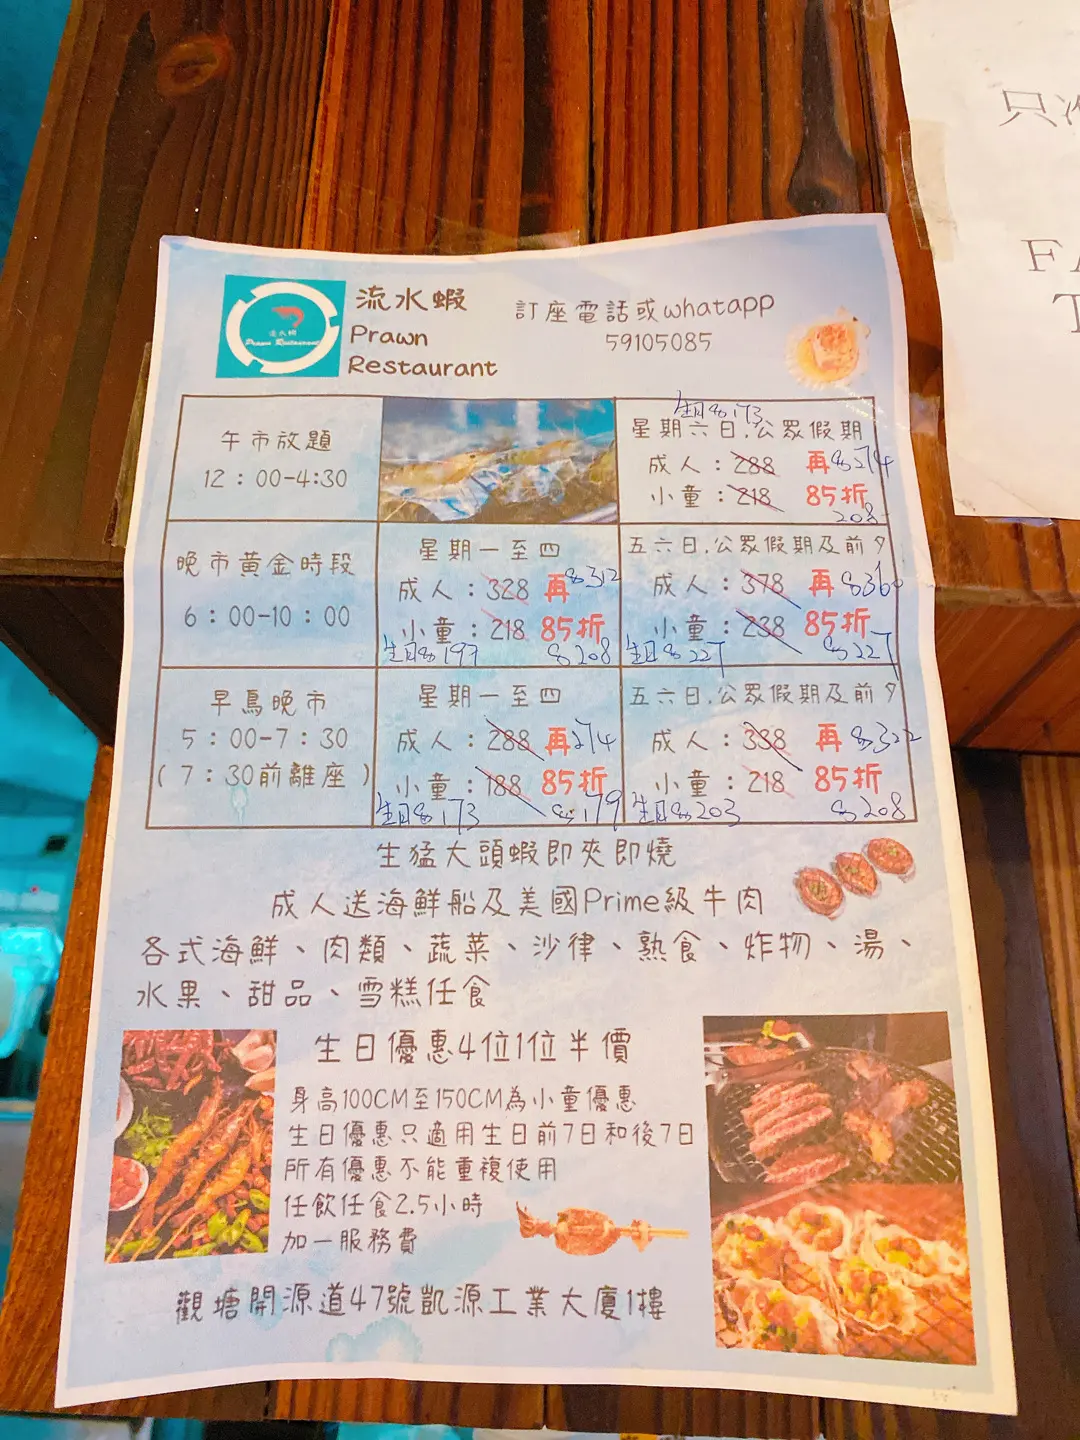 只
FA
T
流水蝦
Prawn
Restaurant
流水蝦
Prawn Restaurant
訂座電話或whatapp
59105085
午市放題
12：00-4:30
生日$173
星期六日.公眾假期
成人：288 再 $274
小童：218 85折
208
晚市黃金時段
6：00-10：00
星期一至四
成人：328 再 $312
小童：218 85折
生日$197 $208
五六日.公眾假期及前夕
成人：378 再 $360
小童：238 85折
生日$227 $227
早鳥晚市
5：00-7：30
(7：30前離座)
星期一至四
成人：288 再 274
小童：188 85折
生日$173 $179
五六日.公眾假期及前夕
成人：338 再 $322
小童：218 85折
生日$203 $208
生猛大頭蝦即夾即燒
成人送海鮮船及美國Prime級牛肉
各式海鮮、肉類、蔬菜、沙律、熟食、炸物、湯、
水果、甜品、雪糕任食
生日優惠4位1位半價
身高100CM至150CM為小童優惠
生日優惠只適用生日前7日和後7日
所有優惠不能重複使用
任飲任食2.5小時
加一服務費
觀塘開源道47號凱源工業大廈1樓